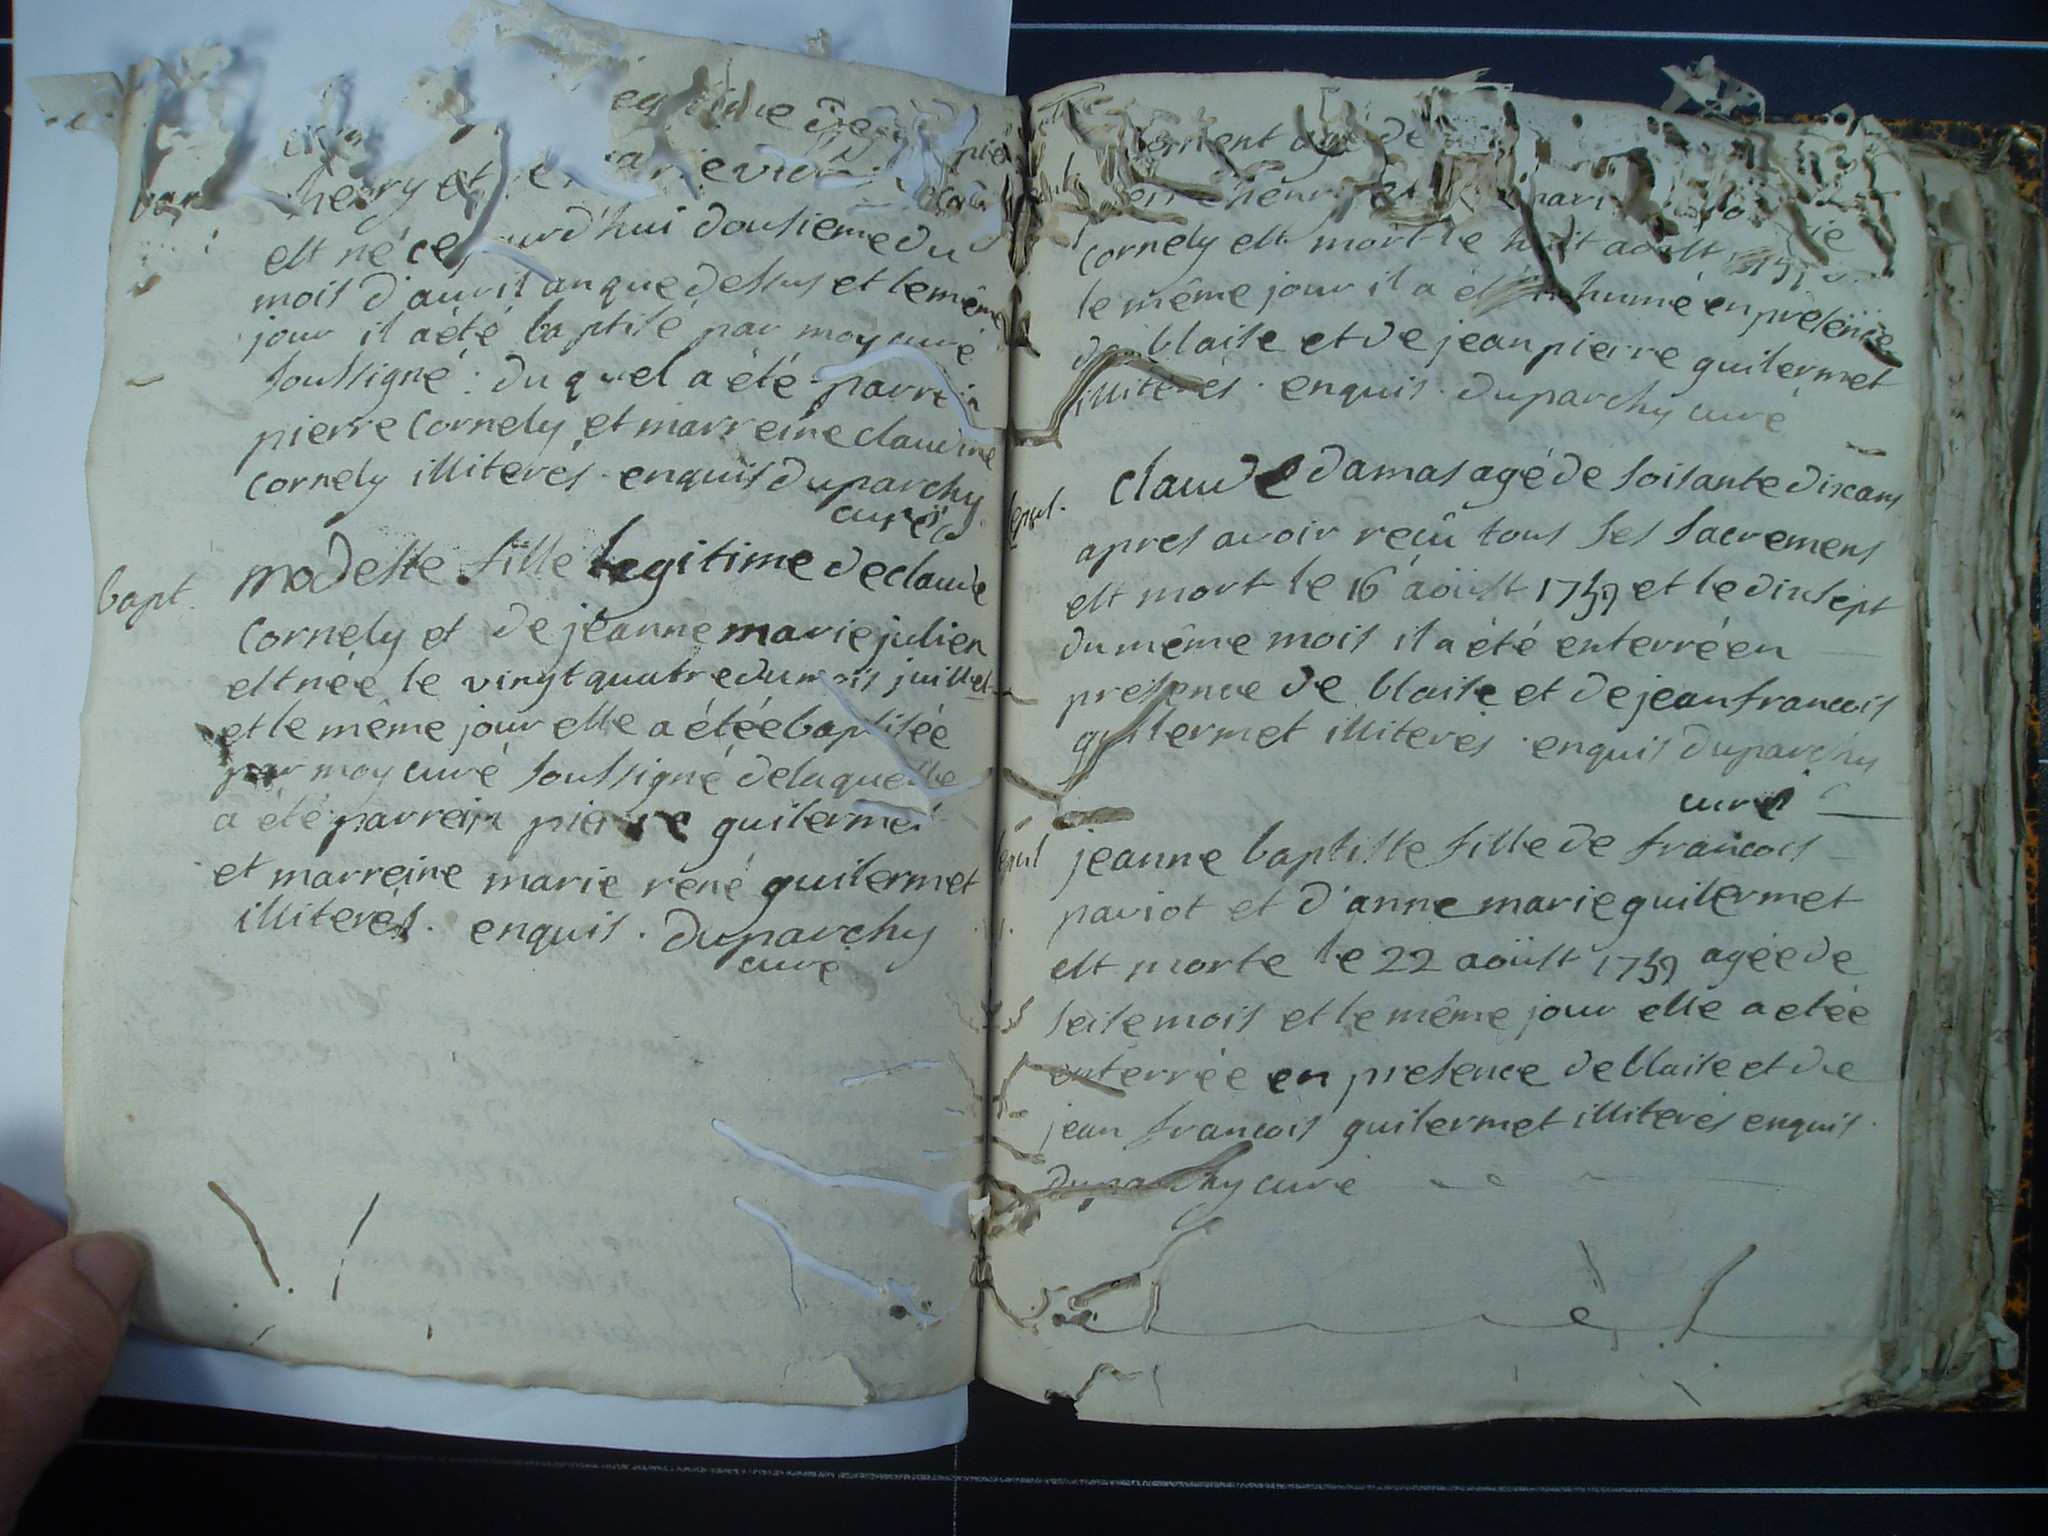 de
bap
henry et
est né ce jourd'hui dousieme du
mois d'auril an que dessus et le même
jour il a été baptisé par moy curé
soussigné. duquel a été parrein
pierre Cornely et marreine claudine
cornely illiterés. enquis duparchy
curé
bapt.
modeste fille legitime de claude
Cornely et de jeanne marie julien
est née le vingt quatre du mois juillet
et le même jour elle a étée baptisée
par moy curé soussigné de laquelle
a été parrein pierre guilermet
et marreine marie rené guilermet
illiterés. enquis. duparchy
curé
agé de
cornely est mort le huit aoust
le même jour il a été inhumé en presence
de blaise et de jean pierre guilermet
illiterés. enquis. duparchy curé
sepul.
claude damas agé de soisante dix ans
apres avoir reçû tous ses sacremens
est mort le 16 aoüst 1759 et le dixsept
du même mois il a été enterré en
presence de blaise et de jean francois
guilermet illiterés. enquis duparchy
curé
sepul
jeanne baptiste fille de francois
paviot et d'anne marie guilermet
est morte le 22 aoüst 1759 agée de
seise mois et le même jour elle a etée
enterrée en presence de blaise et de
jean francois guilermet illiterés enquis.
duparchy curé